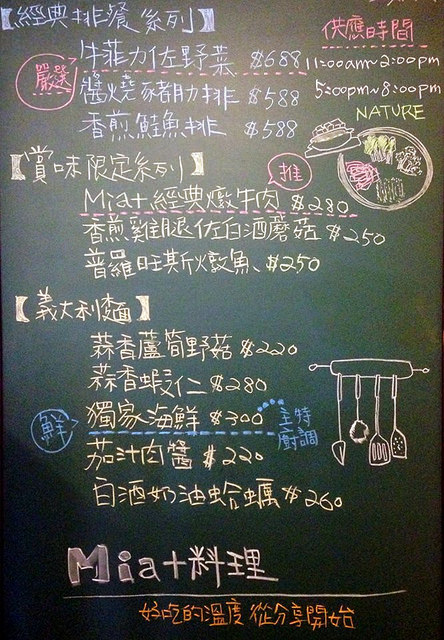 【經典排餐系列】
供應時間
牛菲力佐野菜 $688
11:00am~2:00pm
嚴選
醬燒豬肋排 $588
5:00pm~8:00pm
香煎鮭魚排 $588
NATURE
【賞味限定系列】
推
Mia+經典燉牛肉 $280
香煎雞腿佐白酒蘑菇 $250
普羅旺斯燉魚 $250
【義大利麵】
蒜香蘆筍野菇 $220
蒜香蝦仁 $280
鮮
獨家海鮮 $300
主廚特調
茄汁肉醬 $220
白酒奶油蛤蠣 $260
Mia+料理
好吃的溫度 從分享開始